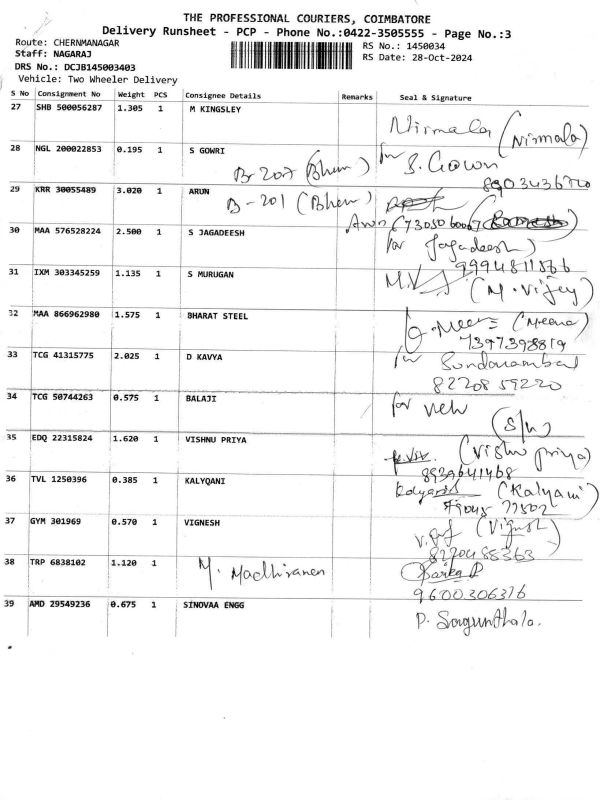 THE PROFESSIONAL COURIERS, COIMBATORE
Delivery Runsheet - PCP - Phone No.:0422-3505555 - Page No.:3
Route: CHERNMANAGAR
RS No.: 1450034
Staff: NAGARAJ
RS Date: 28-Oct-2024
DRS No.: DCJB145003403
Vehicle: Two Wheeler Delivery
S No Consignment No Weight PCS Consignee Details Remarks Seal & Signature
27 SHB 500056287 1.305 1 M KINGSLEY
Nirmala (Nirmala)
28 NGL 200022853 0.195 1 S GOWRI
B-207 (Bhem) for S. Gowri
8903436720
29 KRR 30055489 3.020 1 ARUN
B-201 (Bhem)
Arun (7305060007
30 MAA 576528224 2.500 1 S JAGADEESH
for Jagadeesh)
9994811566
31 IXM 303345259 1.135 1 S MURUGAN
(M. Vijey)
32 MAA 866962980 1.575 1 BHARAT STEEL
(Meena)
7397398819
33 TCG 41315775 2.025 1 D KAVYA
for Sundarambal
8220859220
34 TCG 50744263 0.575 1 BALAJI
for
(S/w)
35 EDQ 22315824 1.620 1 VISHNU PRIYA
(Vishnu priya)
8939641468
36 TVL 1250396 0.385 1 KALYQANI
(Kalyani)
79045 77502
37 GYM 301969 0.570 1 VIGNESH
8220485363
38 TRP 6838102 1.120 1
M. Madhiranan
9600306376
39 AMD 29549236 0.675 1 SINOVAA ENGG
P. Sagunthala.